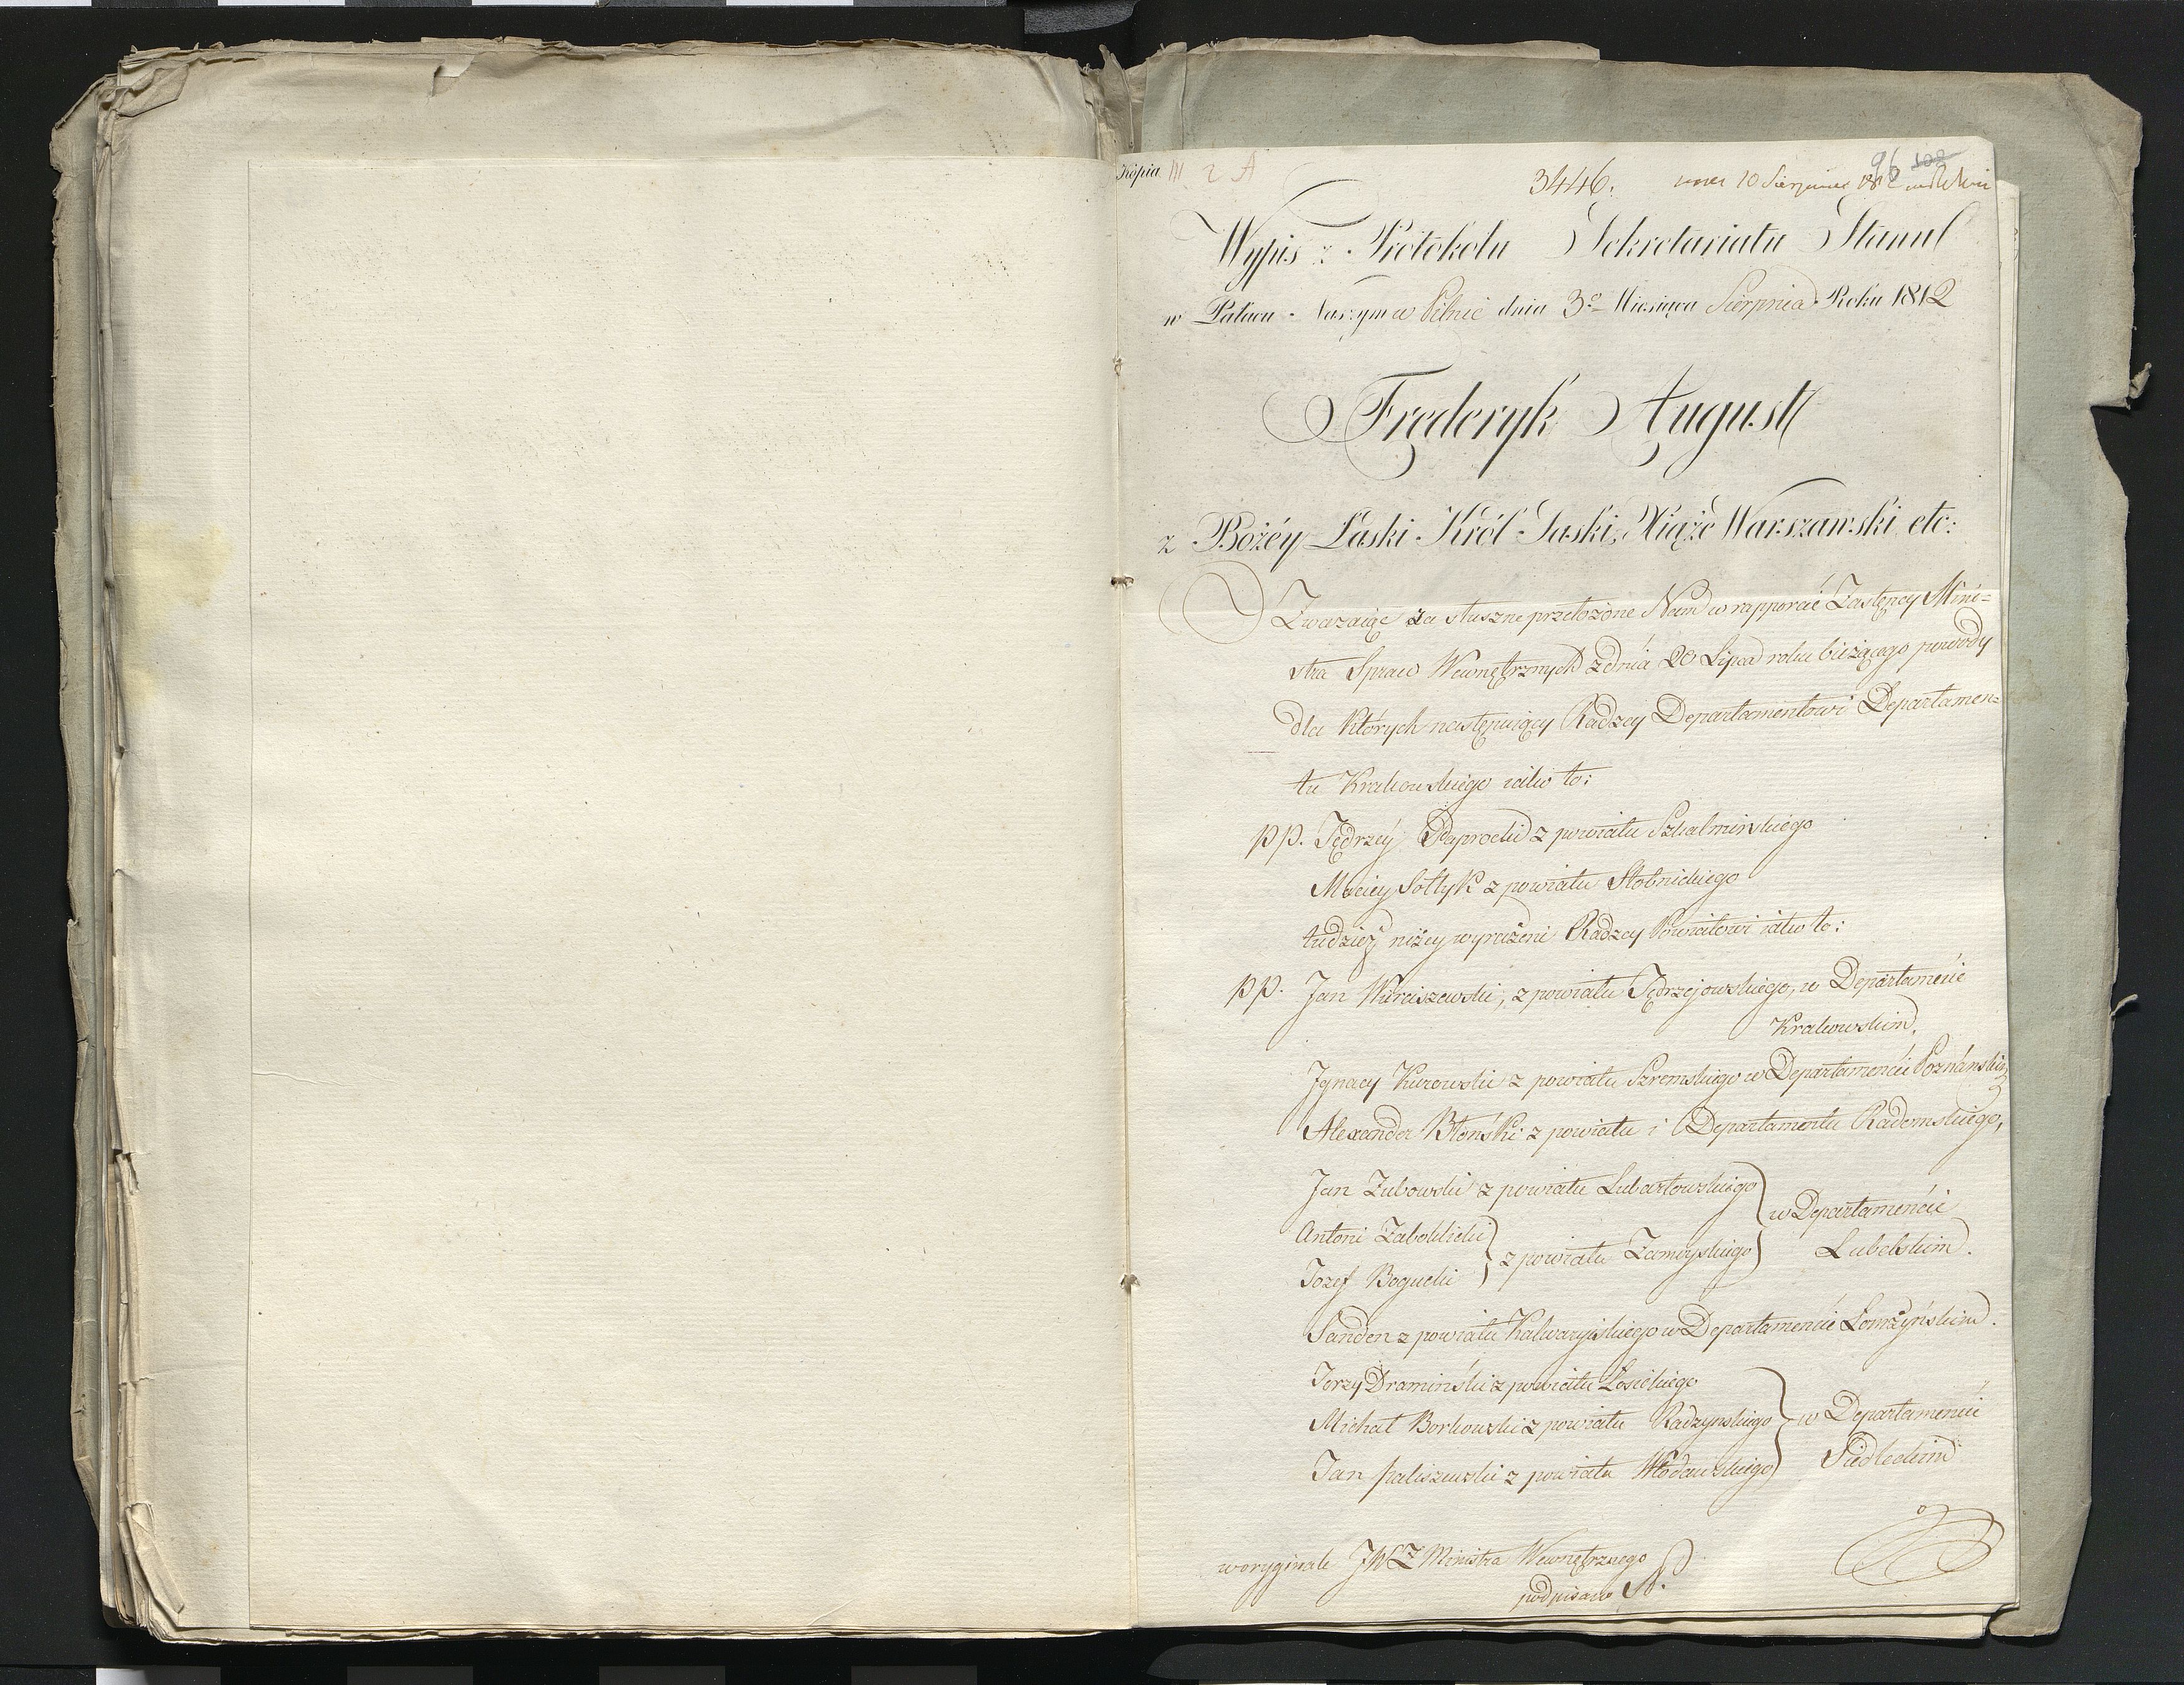 Kópia III 2 A
3446. 10 Sierpnia 1812 96 102
Wypis z Protokołu Sekretariatu Stanu
w Pałacu Naszym w Pilnic dnia 3º Miesiąca Sierpnia Roku 1812
Fryderyk August
z Bożéy Łaski Król Saski, Xiąże Warszawski, etc:
Zważaiąc za słuszne przełożone Nam w rapporcie Zastępcy Mini=
stra Spraw Wewnętrznych z dnia 20 Lipca roku bieżącego powody
dla których następuiący Radzcy Departamentowi Departamen=
tu Krakowskiego iako to:
pp. Jędrzey Paprocki z powiatu Szkalmirskiego
Maciey Sołtyk z powiatu Stobnickiego
tudzież niżey wyrażeni Radzcy Powiatowi iako to:
pp. Jan Wirciszewski, z powiatu Jędrzejowskiego, w Departamencie
Krakowskim,
Jgnacy Kurowski z powiatu Szremskiego w Departamencie Poznańskim
Alexander Błoński z powiatu i Departamentu Radomskiego,
Jan Żubowski z powiatu Lubartowskiego
w Departamencie
Antoni Zaboklicki
z powiatu Zamoyskiego
Lubelskim.
Jozef Bogucki
Sanden z powiatu Kalwaryiskiego w Departamencie Łomżyńskim.
Jerzy Dramiński z powiatu Łosickiego
Michał Borkowski z powiatu Radzynskiego
w Departamencie
Siedleckim
Jan Kaliszewski z powiatu Włodawskiego
w oryginale JWZ Ministra Wewnętrznego
podpisano